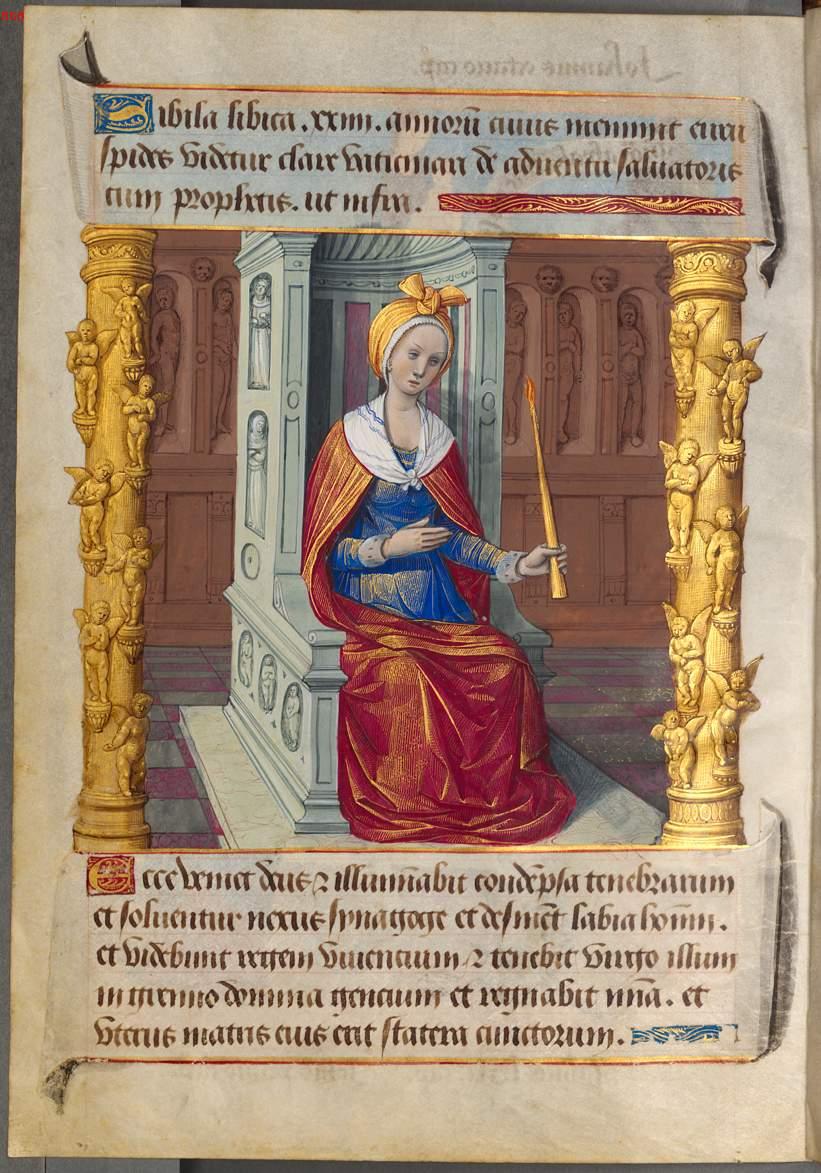 Sibila libica .xxiiii. annorū cuius meminit euri
spides videtur clare vaticinari de aduentu saluatoris
cum prophetis. ut infra.
Ecce veniet deus ⁊ illuminabit condēpsa tenebrarum
et soluentur nexus synagoge et desinēt labia homīn.
et videbunt regem viuencium ⁊ tenebit virgo illum
in gremio domina gencium et regnabit mīa. et
vterus matris eius erit statera cunctorum.